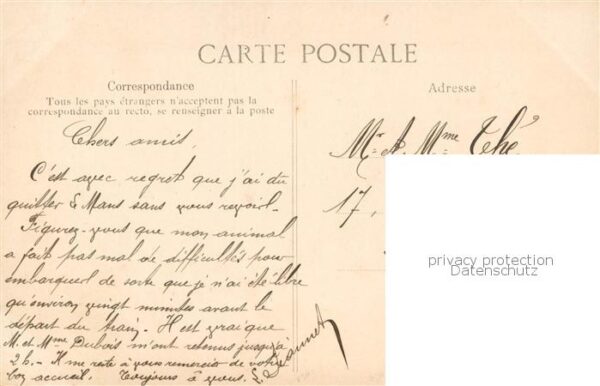 CARTE POSTALE
Correspondance
Tous les pays étrangers n'acceptent pas la
correspondance au recto, se renseigner à la poste
Chers amis,
C'est avec regret que j'ai du
quitter le Mans sans vous revoir.
Figurez-vous que mon animal
a fait pas mal de difficultés pour
embarquer de sorte que je n'ai été libre
qu'environ vingt minutes avant le
départ du train. Il est vrai que
M. et Mme Dubois m'ont retenus jusqu'à
2h. - Il me reste à vous remercier de votre
bon accueil. Toujours à vous.
Adresse
Mr et Mme Thé
17,
privacy protection
Datenschutz